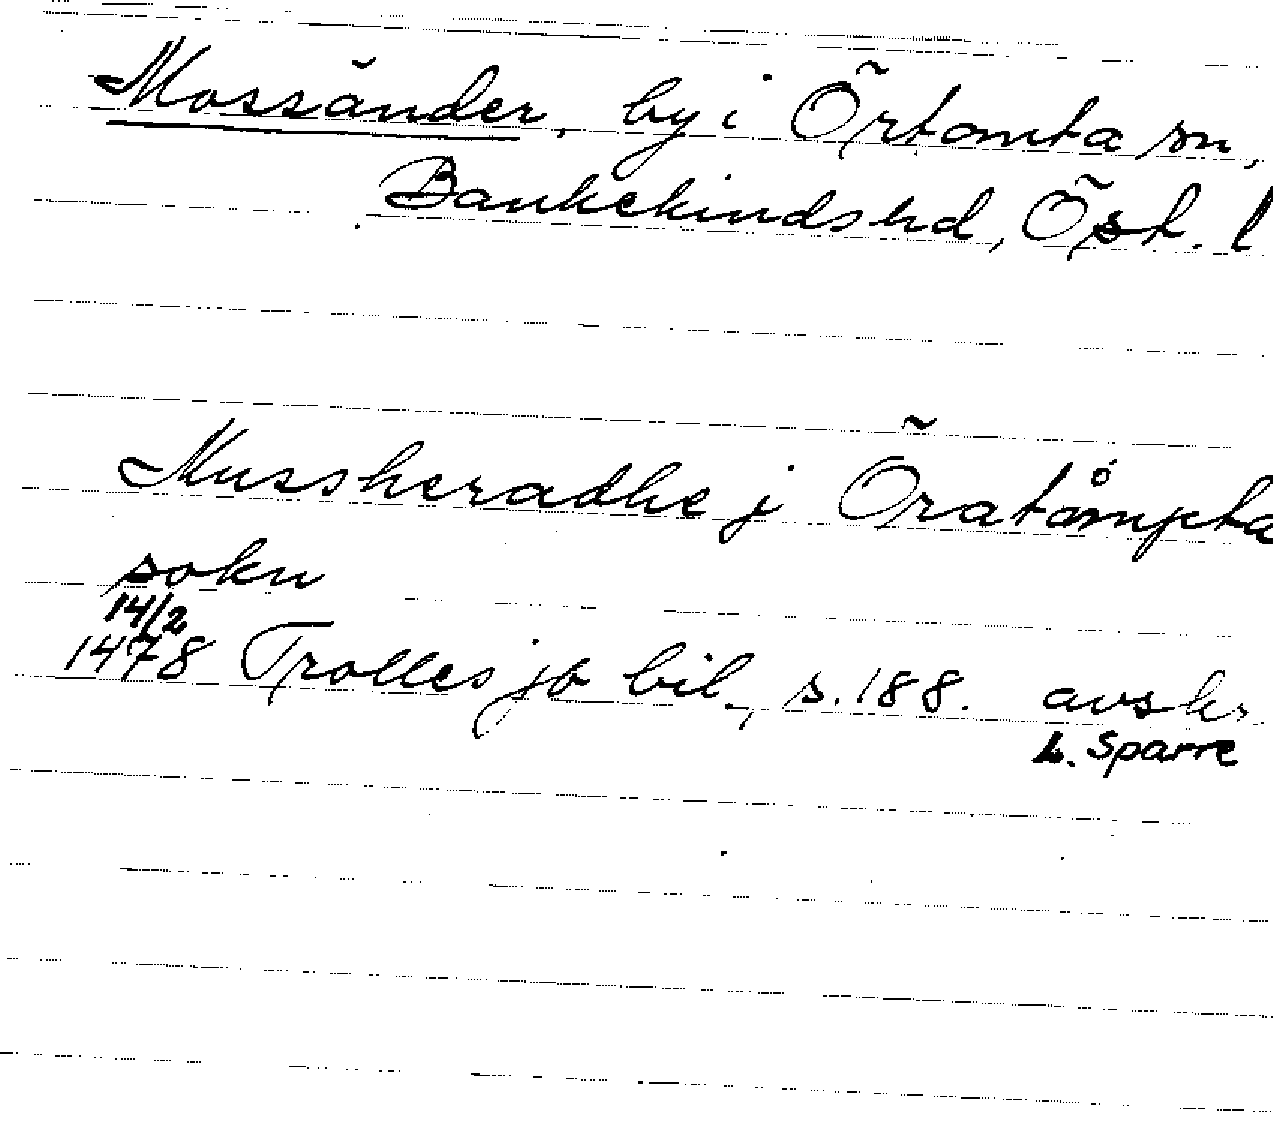 Mossänder, by i Örtomta sn,
Bankekinds hd, Öst. l
Mussheradhe j Öratåmpta
sokn
14/2
1478 Trolles jb bil., s. 188. avskr
L. Sparre